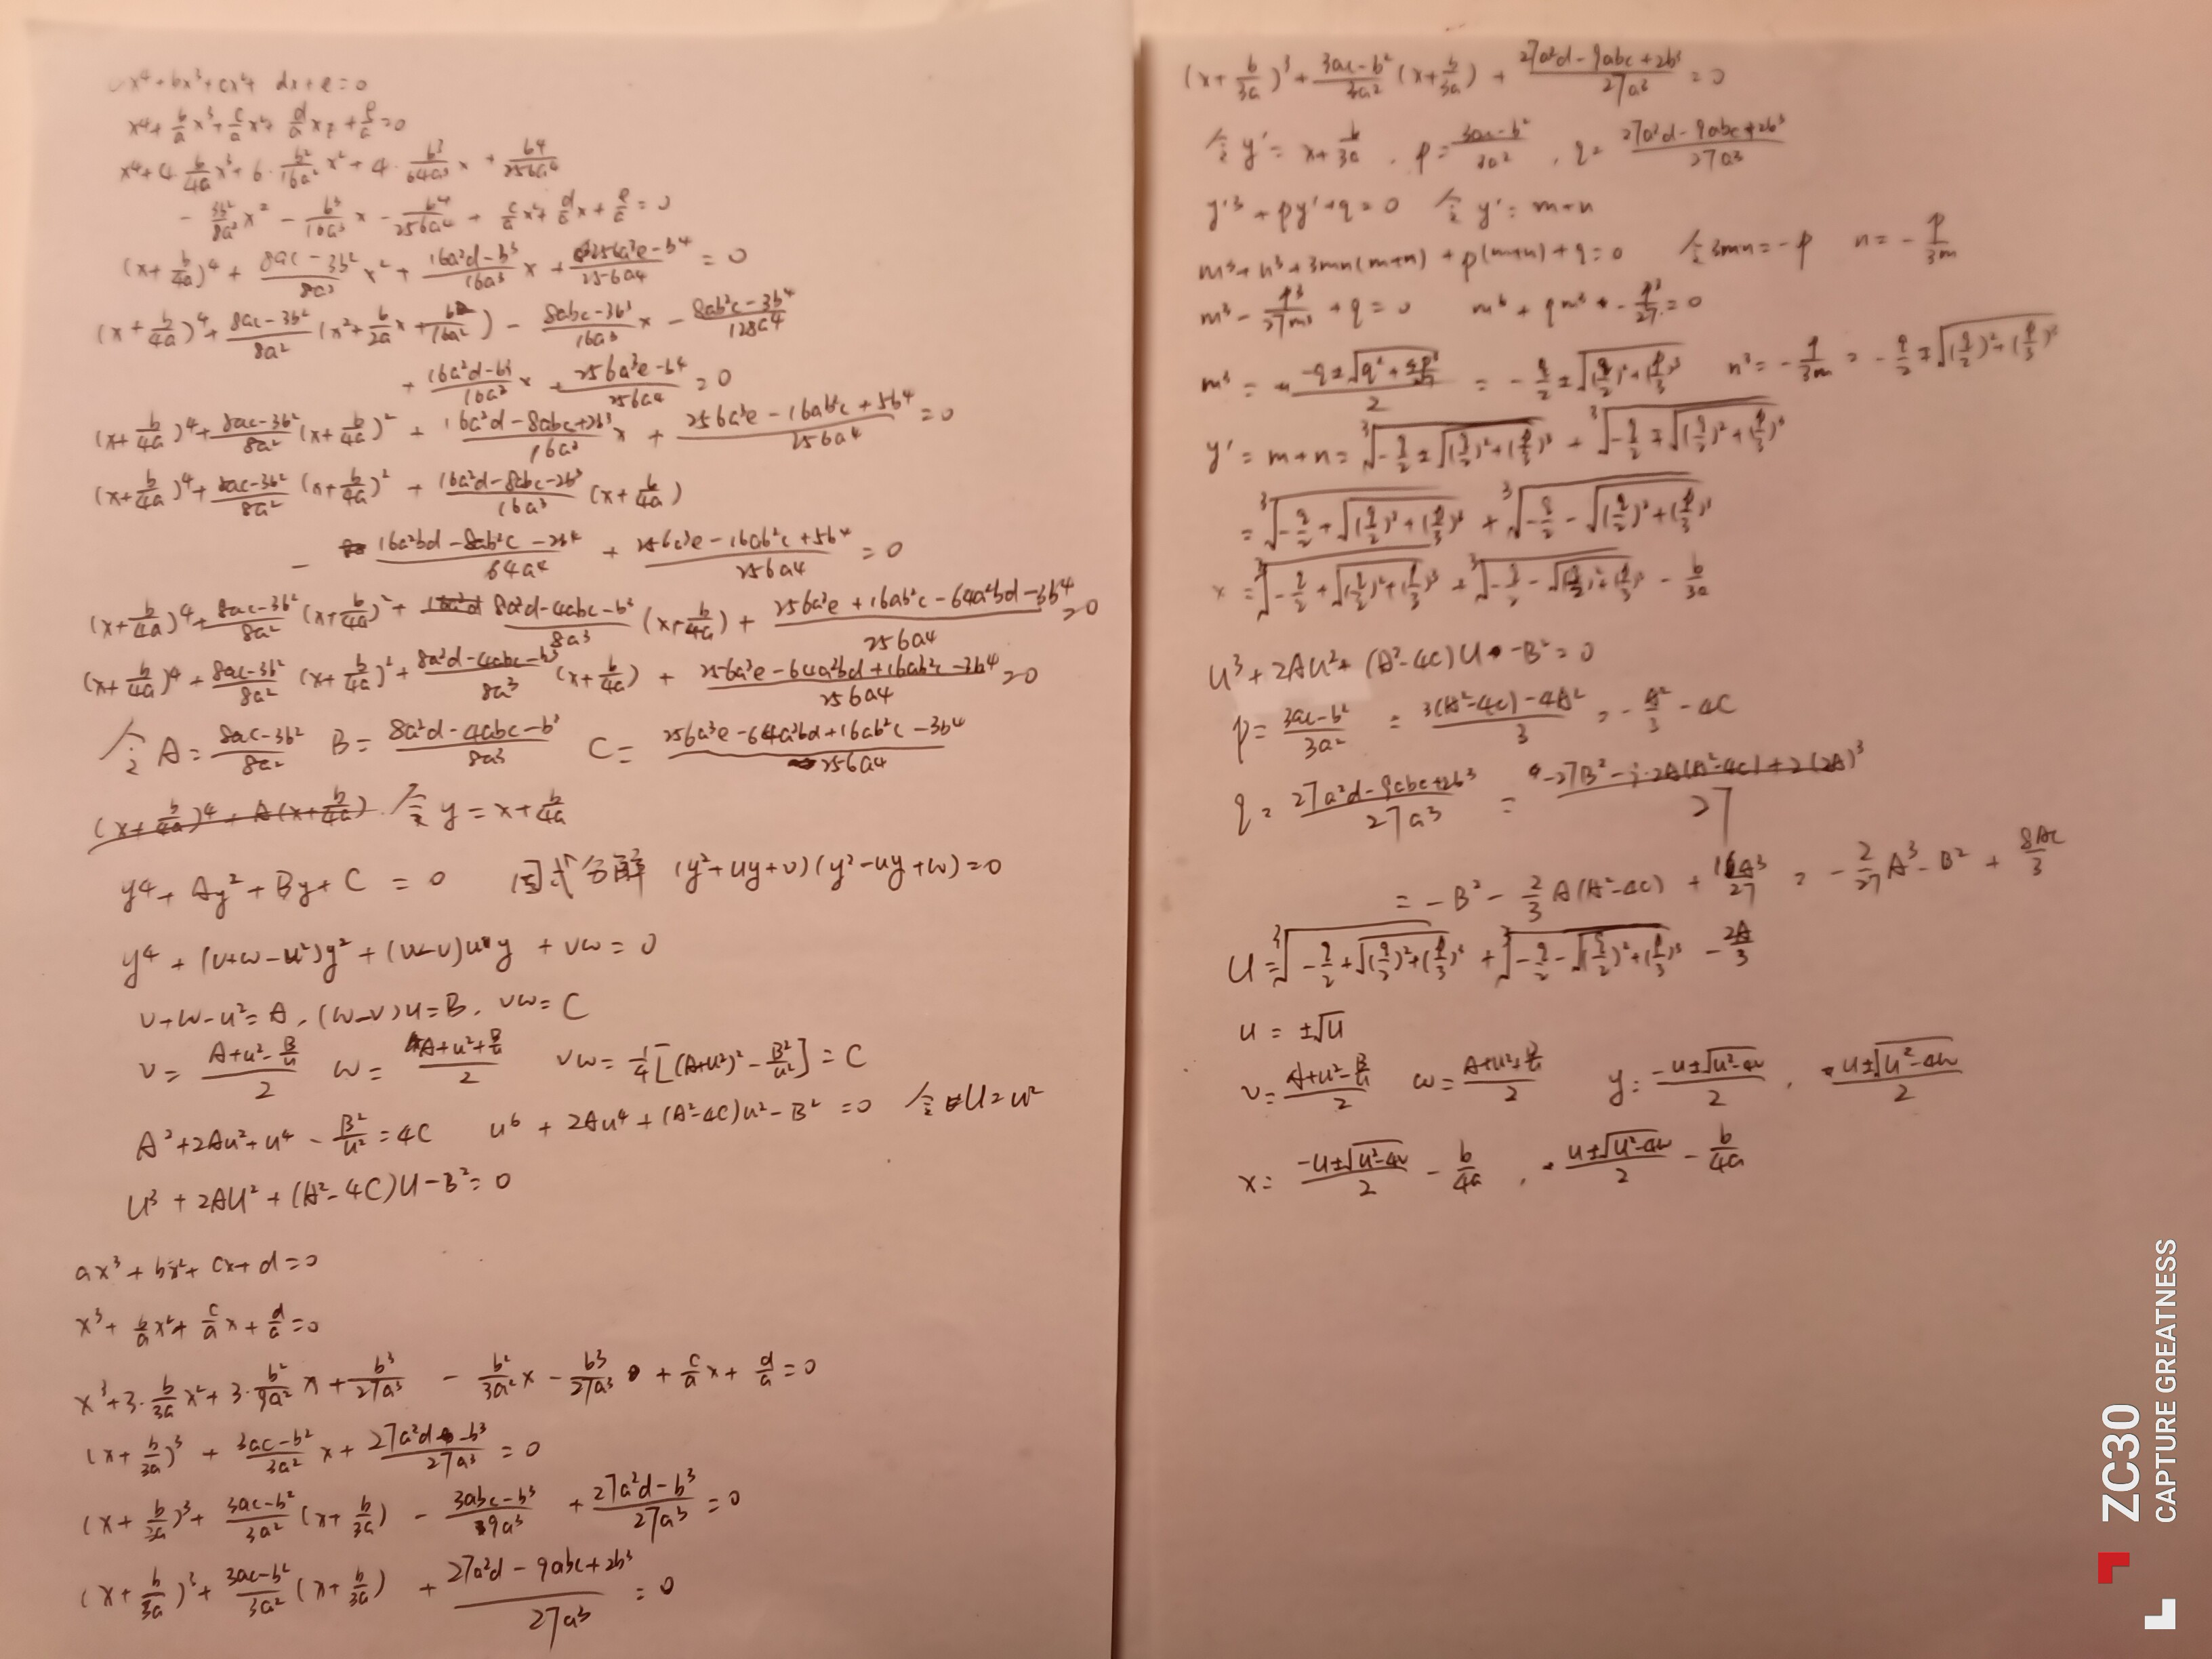 ax⁴+bx³+cx²+ dx+e=0
x⁴+ b/a x³+ c/a x²+ d/a x + e/a =0
x⁴+4· b/4a x³+6· b²/16a² x²+4· b³/64a³ x + b⁴/256a⁴
- 3b²/8a² x² - b³/16a³ x - b⁴/256a⁴ + c/a x²+ d/a x + e/a = 0
(x+ b/4a)⁴ + (8ac-3b²)/8a² x² + (16a²d-b³)/16a³ x + (256a³e-b⁴)/256a⁴ = 0
(x+ b/4a)⁴+ (8ac-3b²)/8a² (x²+ b/2a x+ b²/16a²) - (8abc-3b³)/16a³ x - (8ab²c-3b⁴)/128a⁴
+ (16a²d-b³)/16a³ x + (256a³e-b⁴)/256a⁴ =0
(x+ b/4a)⁴+ (8ac-3b²)/8a² (x+ b/4a)² + (16a²d-8abc+2b³)/16a³ x + (256a³e-16ab²c+5b⁴)/256a⁴ =0
(x+ b/4a)⁴+ (8ac-3b²)/8a² (x+ b/4a)² + (16a²d-8abc-2b³)/16a³ (x+ b/4a)
- (16a²bd-8ab²c-2b⁴)/64a⁴ + (256a³e-16ab²c+5b⁴)/256a⁴ =0
(x+ b/4a)⁴+ (8ac-3b²)/8a² (x+ b/4a)²+ (8a²d-4abc-b³)/8a³ (x+ b/4a) + (256a³e+16ab²c-64a²bd-3b⁴)/256a⁴ =0
(x+ b/4a)⁴+ (8ac-3b²)/8a² (x+ b/4a)²+ (8a²d-4abc-b³)/8a³ (x+ b/4a) + (256a³e-64a²bd+16ab²c-3b⁴)/256a⁴ =0
令 A= (8ac-3b²)/8a² B= (8a²d-4abc-b³)/8a³ C= (256a³e-64a²bd+16ab²c-3b⁴)/256a⁴
(x+ b/4a)⁴+A(x+ b/4a) 令 y=x+ b/4a
y⁴+Ay²+By+C=0 因式分解 (y²+uy+v)(y²-uy+w)=0
y⁴+(v+w-u²)y²+(w-v)uy+vw=0
v+w-u²=A, (w-v)u=B, vw=C
v= (A+u²- B/u)/2 w= (A+u²+ B/u)/2 vw= 1/4[(A+u²)²- B²/u²]=C
A²+2Au²+u⁴- B²/u² =4C u⁶+2Au⁴+(A²-4C)u²-B²=0 令U=u²
U³+2AU²+(A²-4C)U-B²=0
ax³+bx²+cx+d=0
x³+ b/a x²+ c/a x+ d/a =0
x³+3· b/3a x²+3· b²/9a² x+ b³/27a³ - b²/3a² x- b³/27a³ + c/a x+ d/a =0
(x+ b/3a)³ + (3ac-b²)/3a² x+ (27a²d-b³)/27a³ =0
(x+ b/3a)³+ (3ac-b²)/3a² (x+ b/3a) - (3abc-b³)/9a³ + (27a²d-b³)/27a³ =0
(x+ b/3a)³+ (3ac-b²)/3a² (x+ b/3a) + (27a²d-9abc+2b³)/27a³ =0
(x+ b/3a)³+ (3ac-b²)/3a² (x+ b/3a) + (27a²d-9abc+2b³)/27a³ =0
令 y'= x+ b/3a , p= (3ac-b²)/3a² , q= (27a²d-9abc+2b³)/27a³
y'³+py'+q=0 令 y'=m+n
m³+n³+3mn(m+n)+p(m+n)+q=0 令3mn=-p n=- p/3m
m³- p³/27m³ +q=0 m⁶+qm³+- p³/27 =0
m³= (-q±√(q²+ 4p³/27))/2 =- q/2 ±√((q/2)²+(p/3)³) n³=- p/3m =- q/2 ∓√((q/2)²+(p/3)³)
y'=m+n= ³√(- q/2 ±√((q/2)²+(p/3)³)) + ³√(- q/2 ∓√((q/2)²+(p/3)³))
= ³√(- q/2 +√((q/2)²+(p/3)³)) + ³√(- q/2 -√((q/2)²+(p/3)³))
x= ³√(- q/2 +√((q/2)²+(p/3)³)) + ³√(- q/2 -√((q/2)²+(p/3)³)) - b/3a
U³+2AU²+(A²-4C)U-B²=0
p= (3ac-b²)/3a² = (3(A²-4C)-4A²)/3 =- A²/3 -4C
q= (27a²d-9abc+2b³)/27a³ = (-27B²-9·2A(A²-4C)+2(2A)³)/27
=-B²- 2/3 A(A²-4C)+ 16A³/27 =- 2/27 A³-B²+ 8AC/3
U= ³√(- q/2 +√((q/2)²+(p/3)³)) + ³√(- q/2 -√((q/2)²+(p/3)³)) - 2A/3
u=±√U
v= (A+u²- B/u)/2 w= (A+u²+ B/u)/2 y= (-u±√(u²-4v))/2 , (u±√(u²-4w))/2
x= (-u±√(u²-4v))/2 - b/4a , (u±√(u²-4w))/2 - b/4a
ZC30
CAPTURE GREATNESS